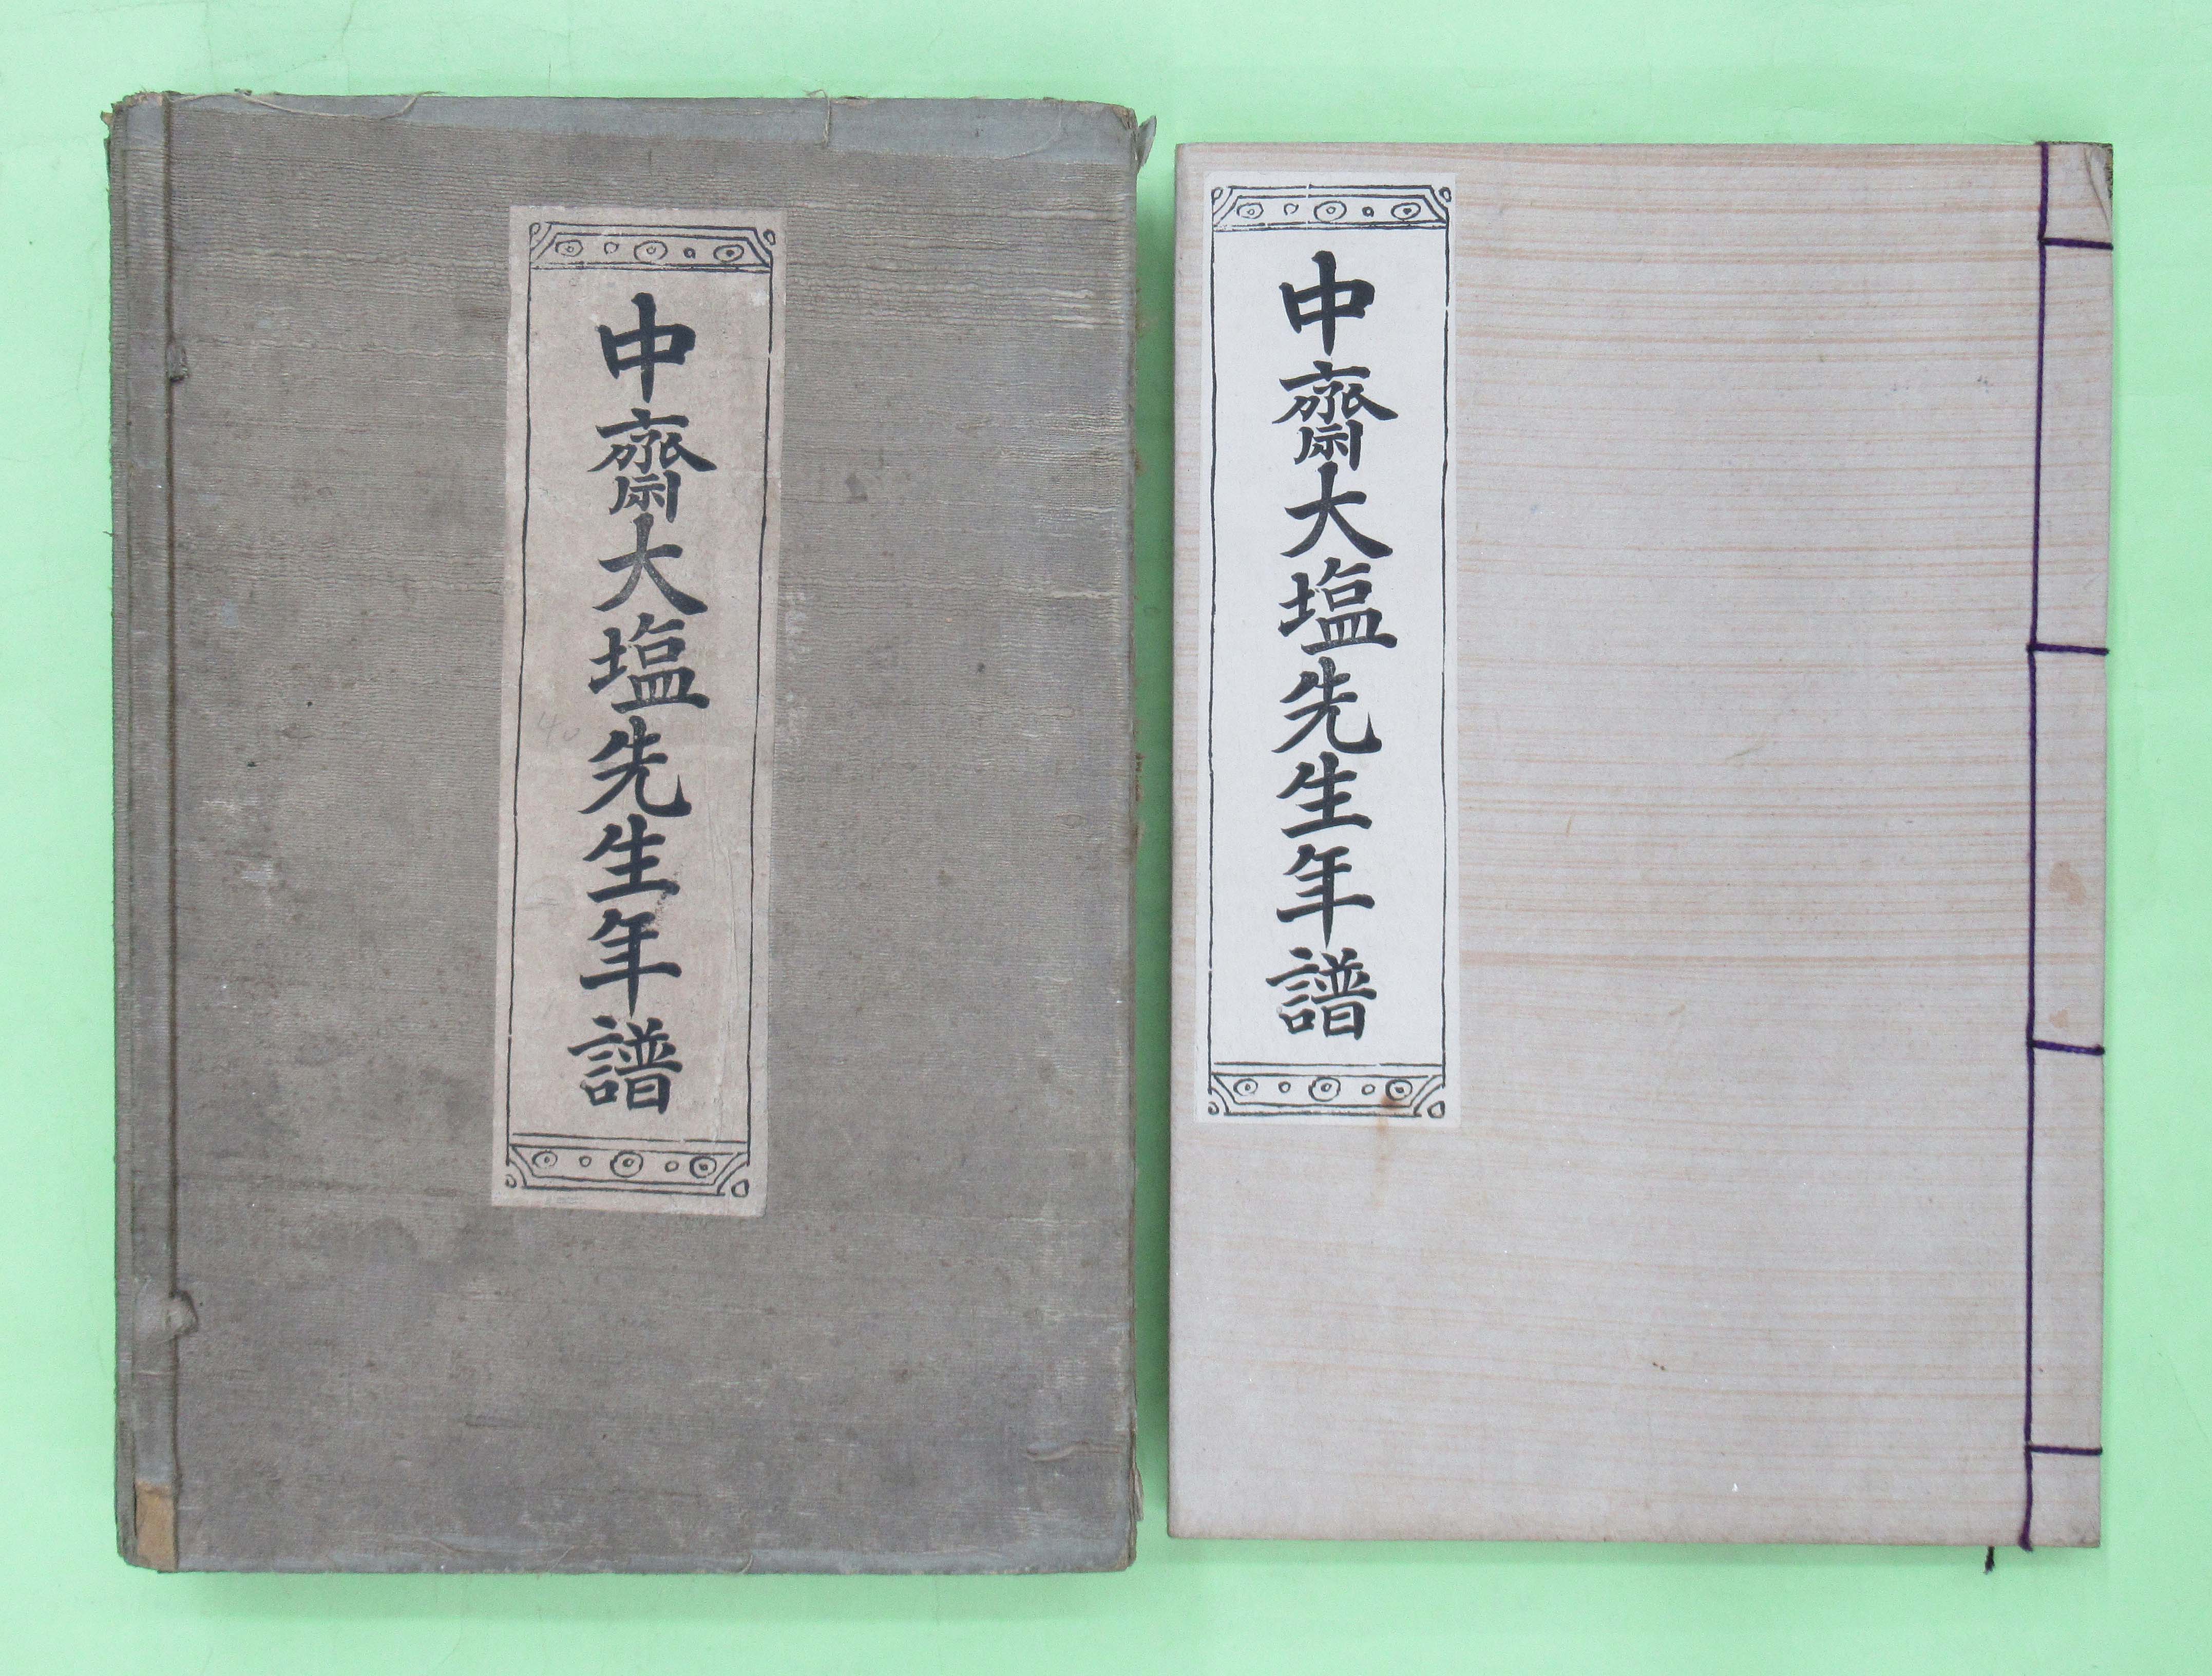 中齋大塩先生年譜
中齋大塩先生年譜